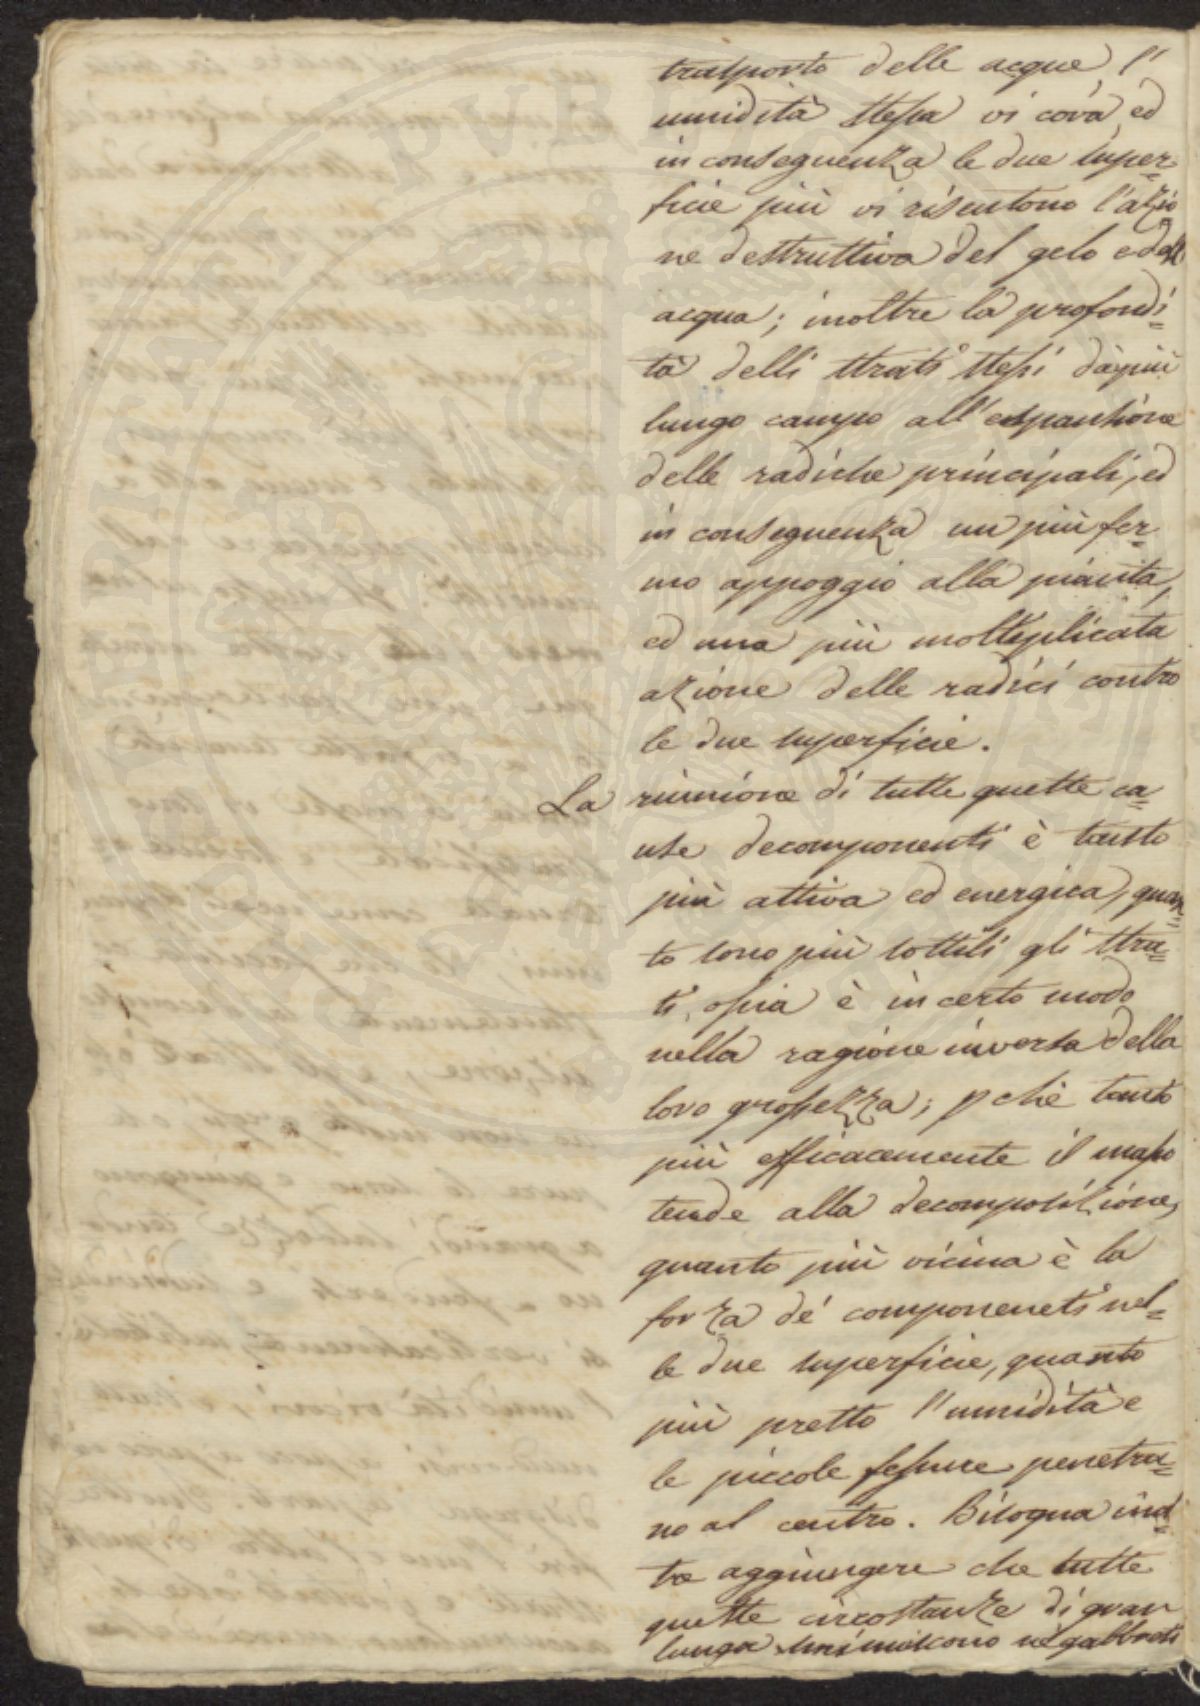 trasporto delle acque l'
umidità stessa vi cova ed
in conseguenza le due super=
ficie più vi risentono l'azio
ne destruttiva del gelo e dell'
acqua; inoltre la profondi=
tà delli strati stessi dà più
lungo campo all'espansione
delle radiche principali, ed
in conseguenza un più fer=
mo appoggio alla pianta,
ed una più molteplicata
azione delle radici contro
le due superficie.
La riunione di tutte queste ca=
use decomponenti è tanto
più attiva ed energica, quan=
to sono più sottili gli stra=
ti, ossia è in certo modo
nella ragione inversa della
loro grossezza; p chè tanto
più efficacemente il masso
tende alla decomposizione,
quanto più vicina è la
forza de' componeneti nel=
le due superficie, quanto
più presto l'umidità e
le piccole fessure penetra=
no al centro. Bisogna inol=
tre aggiungere che tutte
queste circostanze di gran
lunga ne' gabbri